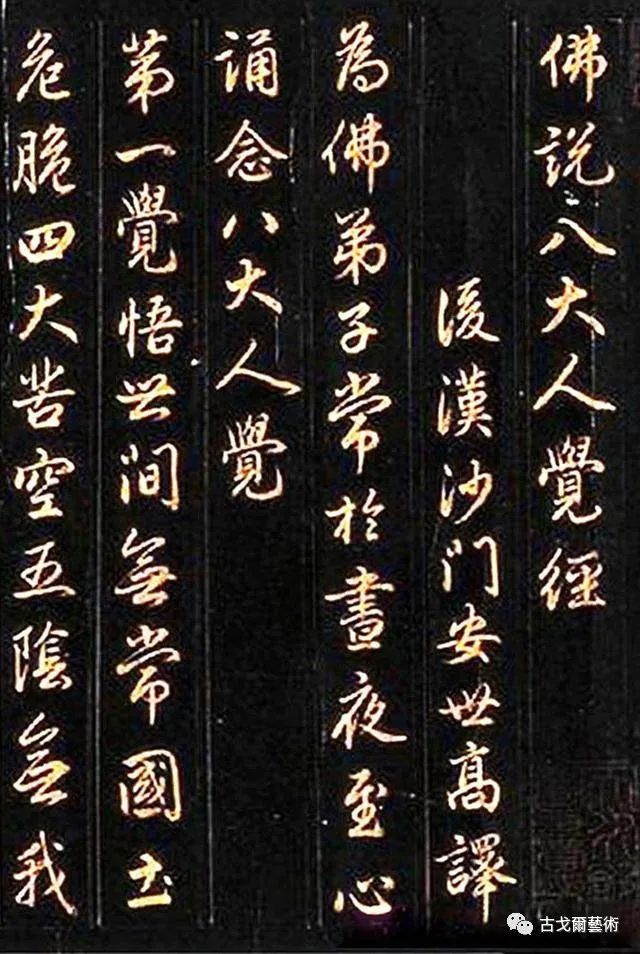 佛說八大人覺經
後漢沙门安世髙譯
為佛弟子常於晝夜至心
誦念八大人覺
第一覺悟世间無常國土
危脆四大苦空五陰無我
古戈爾藝術